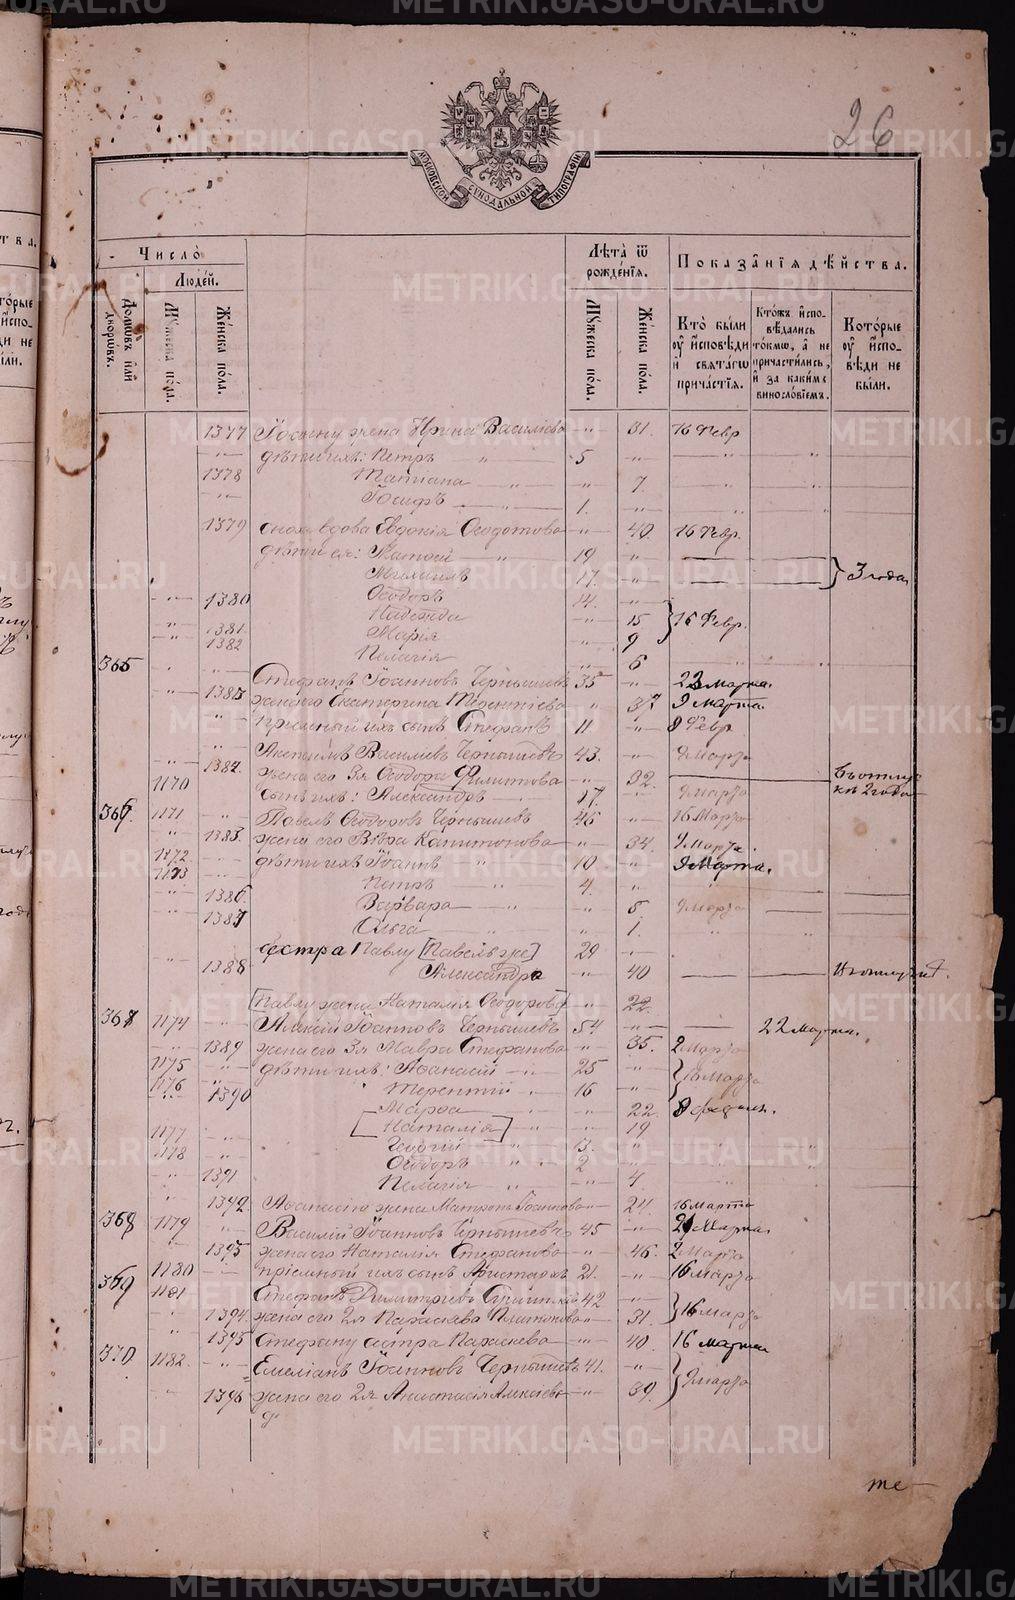 26
МОСКОВСКОЙ СѴНОДАЛЬНОЙ ТИПОГРАФІИ
Число̀
Людéй.
Домѡвъ и҆лѝ дворѡвъ.
Мꙋ́жеска по́ла.
Же́нска по́ла.
Лѣ́та ѿ рожде́нїѧ.
Мꙋ́жеска по́ла.
Же́нска по́ла.
Показа̑нїѧ дѣ́йства.
Кто̀ бы́ли ᲂу҆ и҆сповѣди и҆ свѧта́гѡ прича́стїѧ.
Кто́жъ и҆сповѣ́дались то́кмѡ, а҆ не причасти́лись, и҆ за каки́мъ винослові́емъ.
Кото́рые ᲂу҆ и҆сповѣди не бы́ли.
1377 Іосифу жена Ирина Васильева " 31. 16 Февр
" дѣти ихъ: Петръ " 5 "
1378 Татіана " " 7
" Іосифъ " 1. "
1379 сноха вдова Евдокія Ѳеодотова " 40. 16 Февр.
дѣти ея: Матѳей " 19 "
Михаилъ 17. " 3 года
1380 Ѳеодоръ 14. "
1381 Надежда " 15 16 Февр.
1382 Марія " 9
Пелагія " 6
365 Стефанъ Іоанновъ Чернышевъ 35 " 23 марта.
1383 жена его Екатерина Терентіева " 37 9 марта
пріемный ихъ сынъ Стефанъ 11 " 8 Февр
Василіевъ Чернышевъ 43. " 9 Марта
1384 жена его 3я Ѳеодора Филиппова " 32. Въ отлуч
1170 Сынъ ихъ: Александръ 17. " 9 марта кѣ 2 года
366. 1171 Павелъ Ѳеодоровъ Чернышевъ 46 " 16 Марта
1385 жена его Вѣра Капитонова " 34. 9 Марта
1172 дѣти ихъ Іоаннъ " 10 " 9 Марта.
1173 Петръ " 4. "
1386 Варвара " 5 9 Марта
1387 Ольга " 1.
сестра Павлу [Павелъ же] 29 "
1388 Александра " 40
[Павлу жена Наталія Ѳеодоров] " 22
367 1174 Алексій Іоанновъ Чернышевъ 54 " 22 Марта.
1389 жена его 3я Мавра Стефанова " 35. 2 Марта
1175 дѣти ихъ: Аѳанасій 25 " 16 Марта
1176 Терентій " 16 "
1390 Марѳа " 22. 8
[Наталія] " " 19
1177 Георгій " 13. "
1178 Ѳеодоръ " 2 "
1391 Пелагія " 4.
1392 Аѳанасію жена Матрона Іоаннова " 24. 16 марта
368 1179 Василій Іоанновъ Чернышевъ 45 " 21 Марта.
1393 жена его Наталія Стефанова " 46. 2 Марта
1180 пріемный ихъ сынъ Аристархъ 21. " 16 Марта
369 1181 Стефанъ Димитріевъ 42 "
1394 жена его 2я Параскева Платонова " 31. 16 Марта
1395 Стефану сестра Параскева " 40. 16 марта
370 1182. Емеліанъ Іоанновъ Чернышевъ 41. " 9 Марта
1396 жена его 2я Анастасія Алексіев " 39.
а
те
METRIKI.GASO-URAL.RU